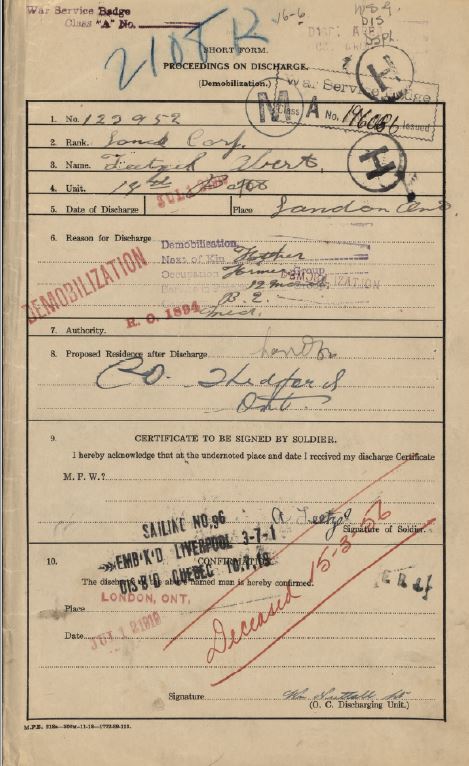 War Service Badge
Class "A" No.
2108 K
SHORT FORM.
PROCEEDINGS ON DISCHARGE.
(Demobilization.)
War Service Badge
Class A No. 196086 Issued
M
H
H
1. No. 122952
2. Rank. Lance Corp.
3. Name. Teetzel Albert
4. Unit.
5. Date of Discharge Place London Ont
6. Reason for Discharge
Demobilization
Next of Kin Father
Occupation Farmer Group
DEMOBILIZATION
DEMOBILIZATION
B. E.
Med.
R. O. 1894
7. Authority.
8. Proposed Residence after Discharge
Thedford
Ont.
9. CERTIFICATE TO BE SIGNED BY SOLDIER.
I hereby acknowledge that at the undernoted place and date I received my discharge Certificate
M. F. W.?
Signature of Soldier.
SAILING NO. 96
EMB'K'D LIVERPOOL 3-7-1
DIS-B'D QUEBEC
10. CONFIRMATION
The discharge of the above named man is hereby confirmed.
Deceased 15-3-56
LONDON, ONT.
Place
JUL 12 1919
Date
Signature
(O. C. Discharging Unit.)